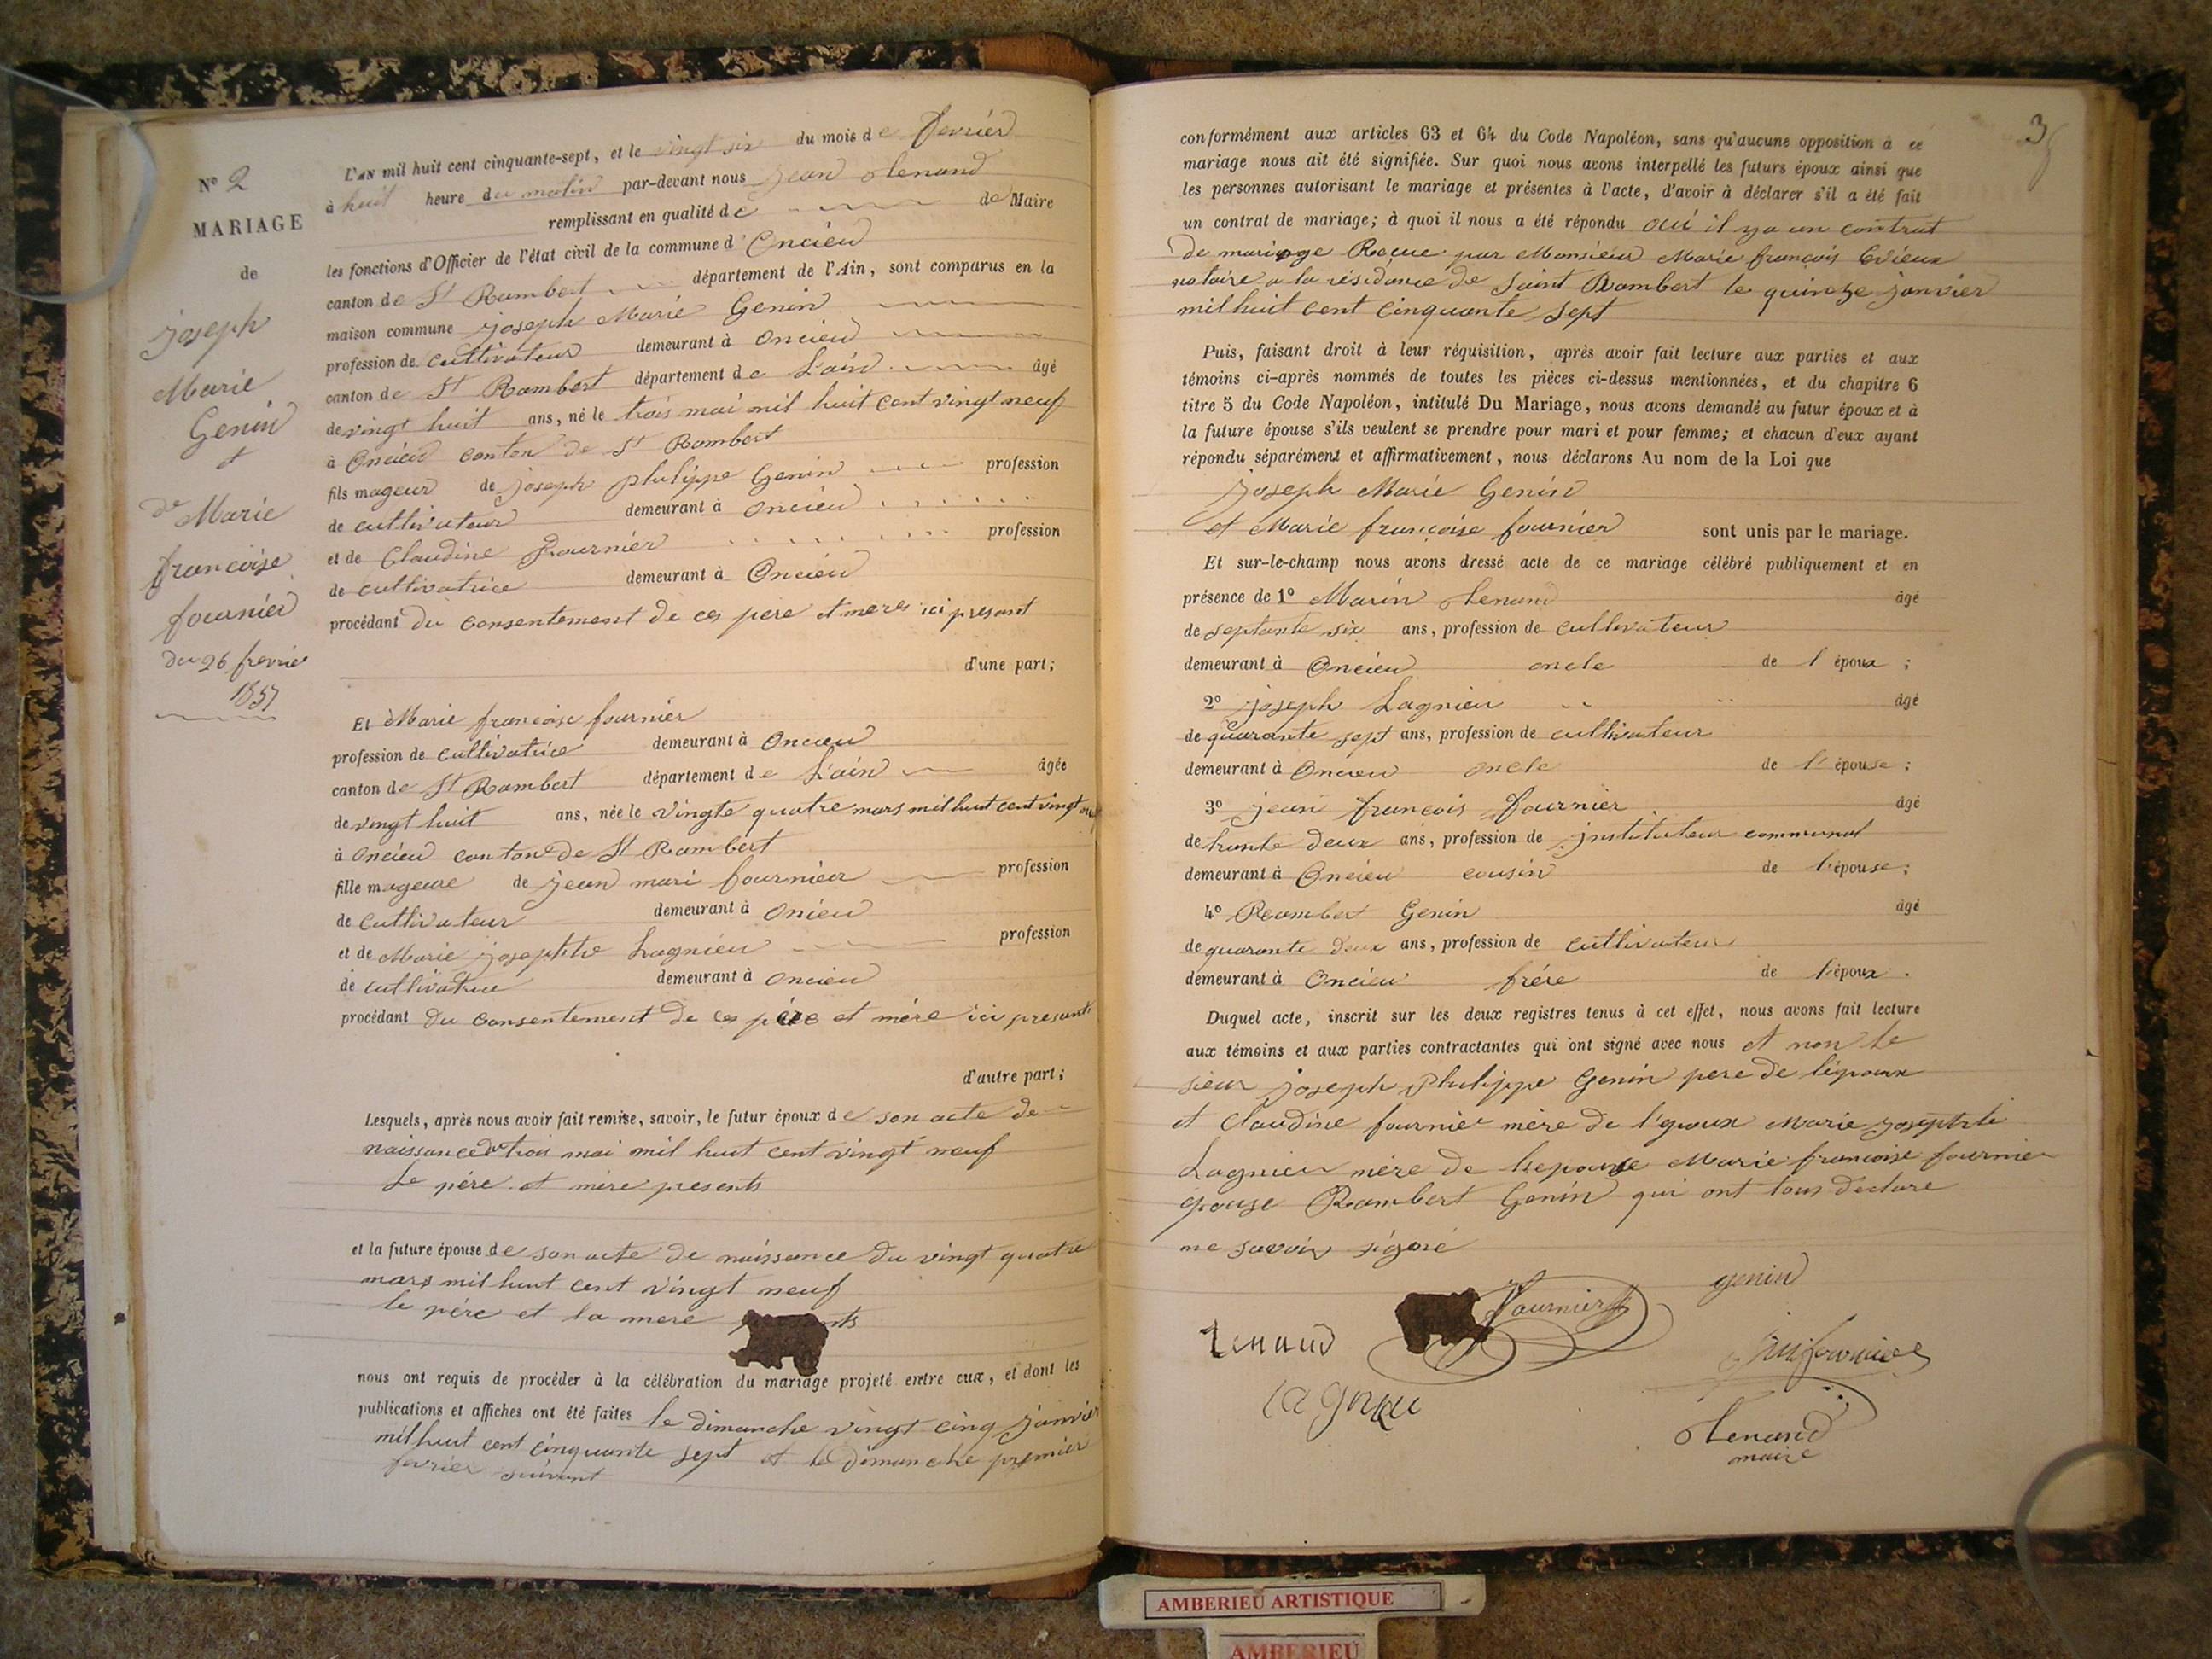 N° 2
MARIAGE
de
joseph
Marie
Genin
et
de Marie
francoise
fournier
du 26 fevrier
1857
L'AN mil huit cent cinquante-sept, et le vingt six du mois de fevrier
à huit heure du matin par-devant nous jean tenand
remplissant en qualité de de Maire
les fonctions d'Officier de l'état civil de la commune d'Oncieu
canton de St Rambert département de l'Ain, sont comparus en la
maison commune joseph Marie Genin
profession de cultivateur demeurant à oncieu
canton de St Rambert département de L'ain âgé
de vingt huit ans, né le trois mai mil huit cent vingt neuf
à Oncieu canton de St Rambert
fils mageur de joseph philippe Genin profession
de cultivateur demeurant à oncieu
et de Claudine fournier profession
de cultivatrice demeurant à Oncieu
procédant du consentement de ces pere et mere ici present
d'une part;
Et Marie francoise fournier
profession de cultivatrice demeurant à Oncieu
canton de St Rambert département de L'ain âgée
de vingt huit ans, née le vingte quatre mars mil huit cent vingt neuf
à oncieu canton de St Rambert
fille mageure de jean mari fournier profession
de cultivateur demeurant à onieu
et de Marie josephte Lagnieu profession
de cultivatrice demeurant à oncieu
procédant du consentement de ces père et mére ici presents
d'autre part;
Lesquels, après nous avoir fait remise, savoir, le futur époux de son acte de
naissance du trois mai mil huit cent vingt neuf
Le père et mère presents
et la future épouse de son acte de naissance du vingt quatre
mars mil huit cent vingt neuf
le pére et la mere
nous ont requis de procéder à la célébration du mariage projeté entre eux, et dont les
publications et affiches ont été faites le dimanche vingt cinq janvier
mil huit cent cinquante sept et le dimanche premier
fevrier suivant
3
conformément aux articles 63 et 64 du Code Napoléon, sans qu'aucune opposition à ce
mariage nous ait été signifiée. Sur quoi nous avons interpellé les futurs époux ainsi que
les personnes autorisant le mariage et présentes à l'acte, d'avoir à déclarer s'il a été fait
un contrat de mariage; à quoi il nous a été répondu oui il ya un contrat
de mariage Recue par Monsieur Marie françois
notaire a la résidance de Saint Rambert le quinze janvier
mil huit cent cinquante sept
Puis, faisant droit à leur réquisition, après avoir fait lecture aux parties et aux
témoins ci-après nommés de toutes les pièces ci-dessus mentionnées, et du chapitre 6
titre 5 du Code Napoléon, intitulé Du Mariage, nous avons demandé au futur époux et à
la future épouse s'ils veulent se prendre pour mari et pour femme; et chacun d'eux ayant
répondu séparément et affirmativement, nous déclarons Au nom de la Loi que
joseph Marie Genin
et Marie françoise fournier sont unis par le mariage.
Et sur-le-champ nous avons dressé acte de ce mariage célébré publiquement et en
présence de 1° Marin tenand âgé
de septante six ans, profession de cultivateur
demeurant à Oncieu oncle de l'époux;
2° joseph Lagnieu âgé
de quarante sept ans, profession de cultivateur
demeurant à Oncieu oncle de l'épouse;
3° jean françois fournier âgé
de trente deux ans, profession de instituteur communal
demeurant à Oncieu cousin de l'épouse;
4° Rambert Genin âgé
de quarante deux ans, profession de cultivateur
demeurant à Oncieu frére de l'époux.
Duquel acte, inscrit sur les deux registres tenus à cet effet, nous avons fait lecture
aux témoins et aux parties contractantes qui ont signé avec nous et non le
sieur joseph philippe Genin pere de l'époux
et Claudine fournier mère de l'epoux Marie josephte
Lagnieu mére de l'epouse Marie francoise fournier
epouse Rambert Genin qui ont tous declare
ne savoir signé
genin
fournier
tenand
jm fournier
lagnieu
tenand
maire
AMBERIEU ARTISTIQUE
AMBERIEU